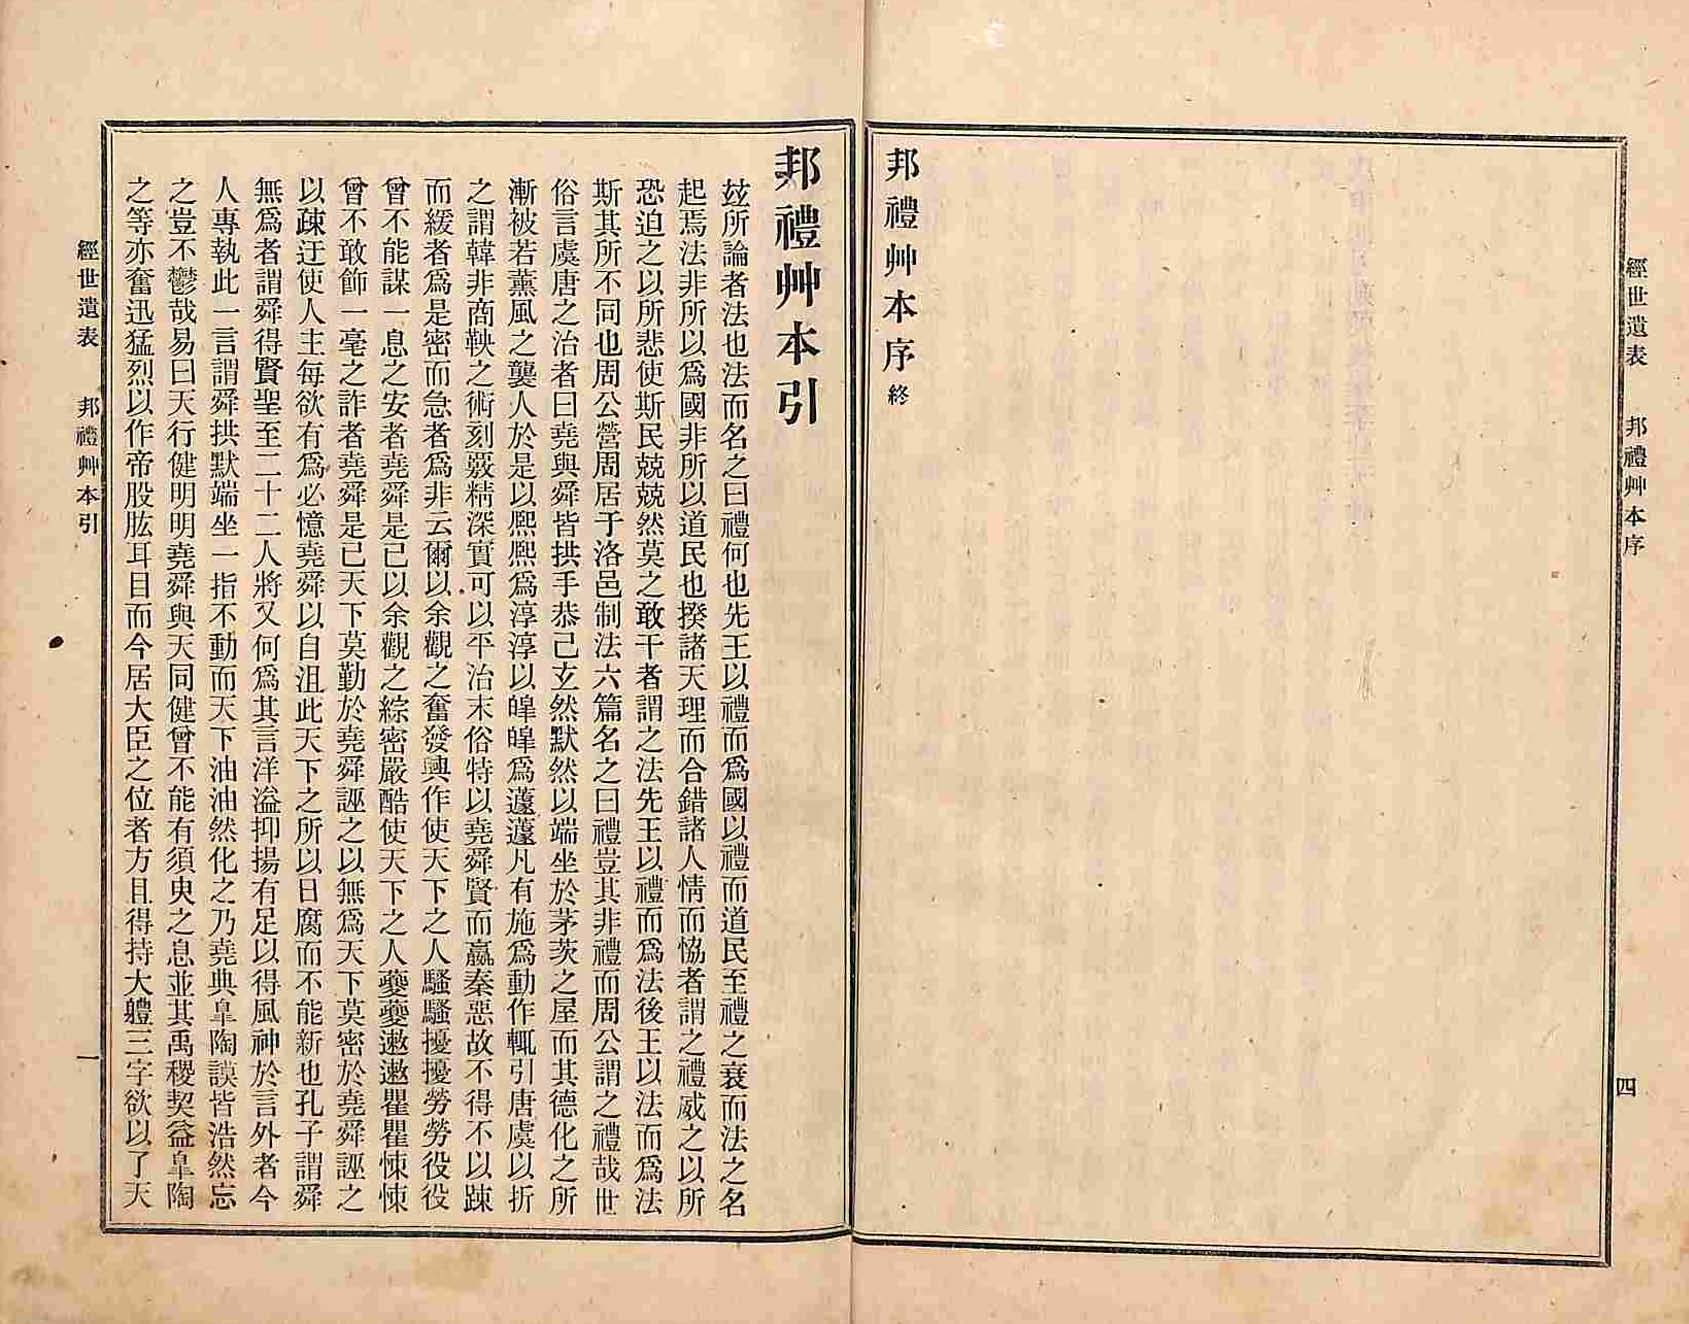 經世遺表　邦禮艸本序
四
邦禮艸本序終
邦禮艸本引
玆所論者法也法而名之曰禮何也先王以禮而爲國以禮而道民至禮之衰而法之名
起焉法非所以爲國非所以道民也揆諸天理而合錯諸人情而恊者謂之禮威之以所
恐迫之以所悲使斯民兢兢然莫之敢干者謂之法先王以禮而爲法後王以法而爲法
斯其所不同也周公營周居于洛邑制法六篇名之曰禮豈其非禮而周公謂之禮哉世
俗言虞唐之治者曰堯與舜皆拱手恭己玄然默然以端坐於茅茨之屋而其德化之所
漸被若薰風之襲人於是以熙熙爲淳淳以皥皥爲蘧蘧凡有施爲動作輒引唐虞以折
之謂韓非商鞅之術刻覈精深實可以平治末俗特以堯舜賢而嬴秦惡故不得不以疎
而緩者爲是密而急者爲非云爾以余觀之奮發興作使天下之人騷騷擾擾勞勞役役
曾不能謀一息之安者堯舜是已以余觀之綜密嚴酷使天下之人夔夔遬遬瞿瞿悚悚
曾不敢飾一毫之詐者堯舜是已天下莫勤於堯舜誣之以無爲天下莫密於堯舜誣之
以疎迂使人主每欲有爲必憶堯舜以自沮此天下之所以日腐而不能新也孔子謂舜
無爲者謂舜得賢聖至二十二人將又何爲其言洋溢抑揚有足以得風神於言外者今
人專執此一言謂舜拱默端坐一指不動而天下油油然化之乃堯典皐陶謨皆浩然忘
之豈不鬱哉易曰天行健明明堯舜與天同健曾不能有須臾之息並其禹稷契益皐陶
之等亦奮迅猛烈以作帝股肱耳目而今居大臣之位者方且得持大軆三字欲以了天
經世遺表　邦禮艸本引
一